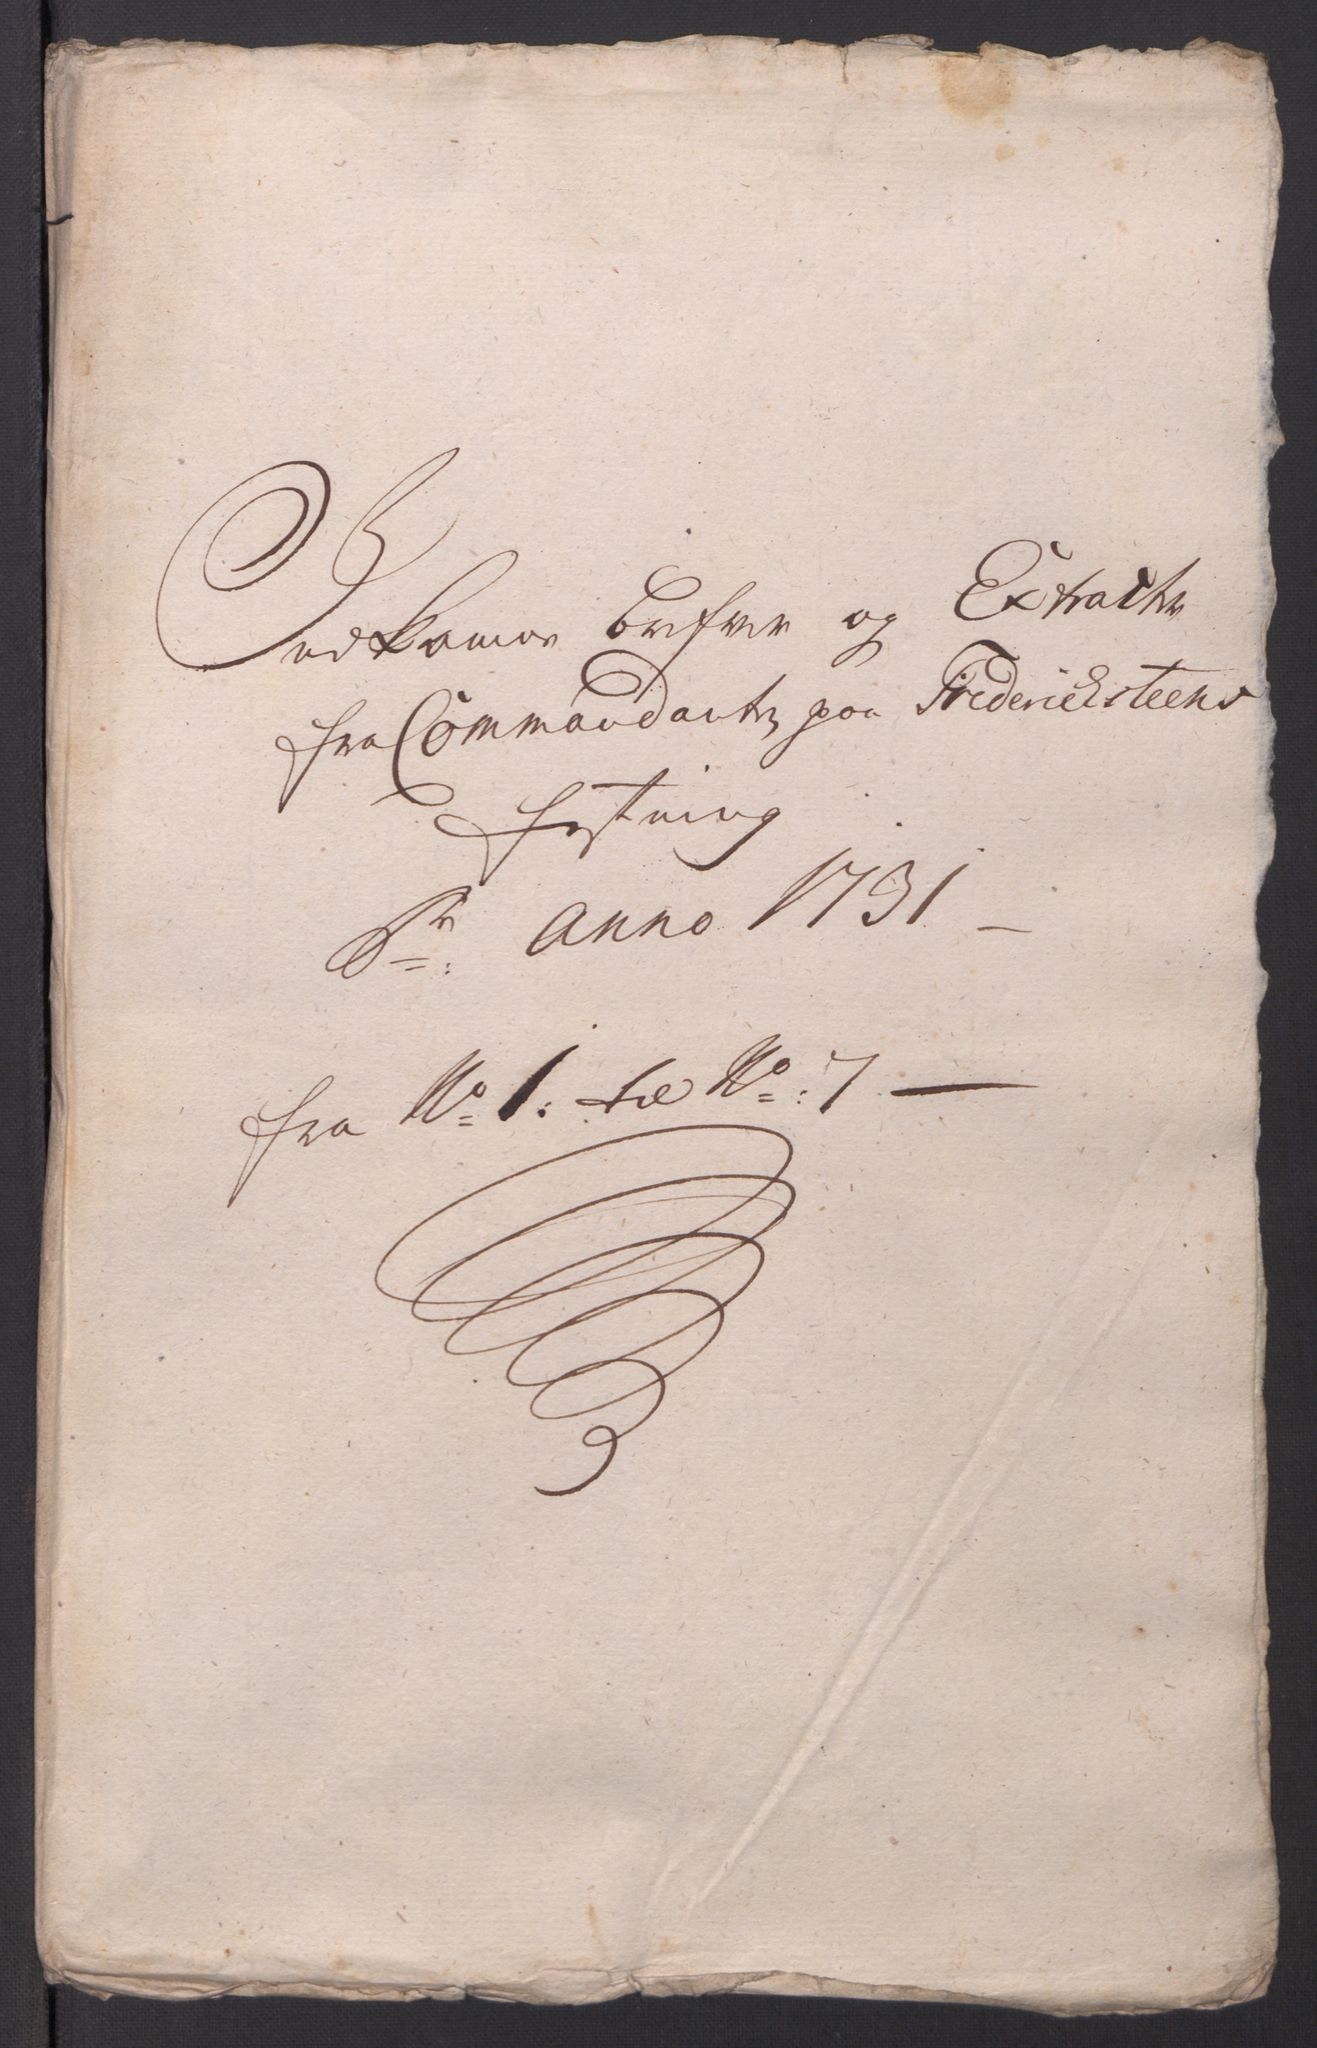 Indkomne brefver og Extracter
fra Commandanten paa Fredericksteens
festning
Pr: Anno 1731
fra No 1: til No: 7